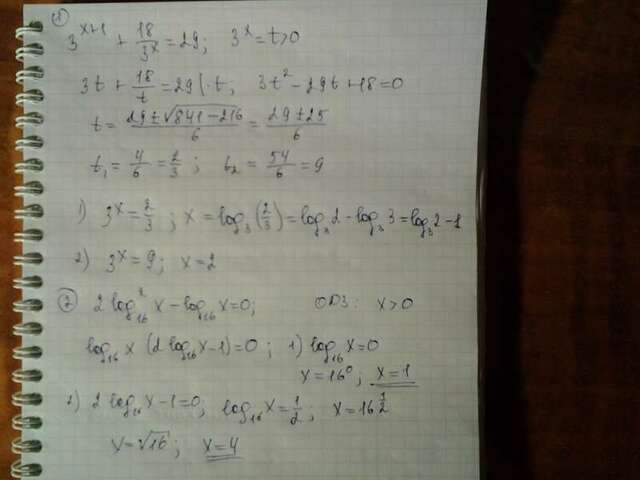 ① 3^(x+1) + 18/3^x = 29; 3^x = t > 0
3t + 18/t = 29 | · t; 3t² - 29t + 18 = 0
t = (29 ± √(841 - 216))/6 = (29 ± 25)/6
t₁ = 4/6 = 2/3; t₂ = 54/6 = 9
1) 3^x = 2/3; x = log₃(2/3) = log₃2 - log₃3 = log₃2 - 1
2) 3^x = 9; x = 2
② 2 log²₁₆ x - log₁₆ x = 0; ОДЗ: x > 0
log₁₆ x (2 log₁₆ x - 1) = 0; 1) log₁₆ x = 0
x = 16⁰; x = 1
2) 2 log₁₆ x - 1 = 0; log₁₆ x = 1/2; x = 16^(1/2)
x = √16; x = 4